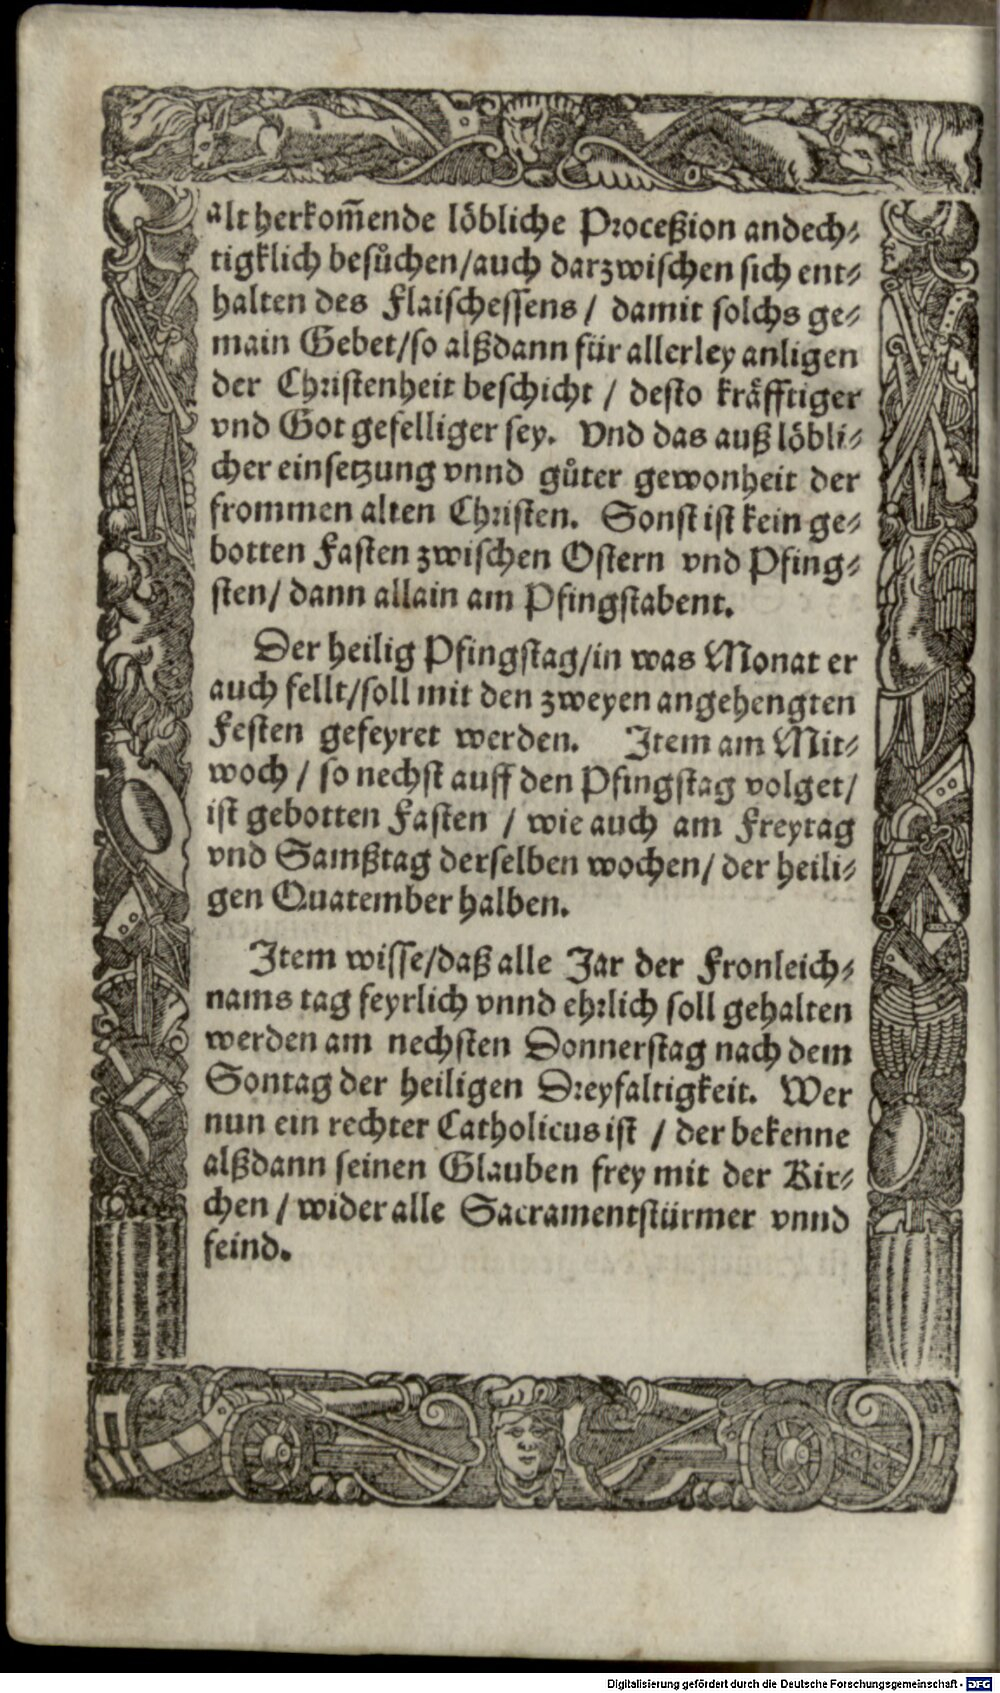 alt herkom̃ende löbliche Proceßion andech⸗
tigklich besůchen/auch darzwischen sich ent⸗
halten des Flaischessens / damit solchs ge⸗
main Gebet/so alßdann für allerley anligen
der Christenheit beschicht / desto kräfftiger
vnd Got gefelliger sey. Vnd das auß löbli⸗
cher einsetzung vnnd gůter gewonheit der
frommen alten Christen. Sonst ist kein ge⸗
botten Fasten zwischen Ostern vnd Pfing⸗
sten/ dann allain am Pfingstabent.
Der heilig Pfingstag/in was Monat er
auch fellt/soll mit den zweyen angehengten
Festen gefeyret werden. Item am Mit⸗
woch / so nechst auff den Pfingstag volget/
ist gebotten Fasten / wie auch am Freytag
vnd Samßtag derselben wochen/ der heili⸗
gen Quatember halben.
Item wisse/daß alle Jar der Fronleich⸗
nams tag feyrlich vnnd ehrlich soll gehalten
werden am nechsten Donnerstag nach dem
Sontag der heiligen Dreyfaltigkeit. Wer
nun ein rechter Catholicus ist / der bekenne
alßdann seinen Glauben frey mit der Kir⸗
chen / wider alle Sacramentstürmer vnnd
feind.
Digitalisierung gefördert durch die Deutsche Forschungsgemeinschaft - DFG